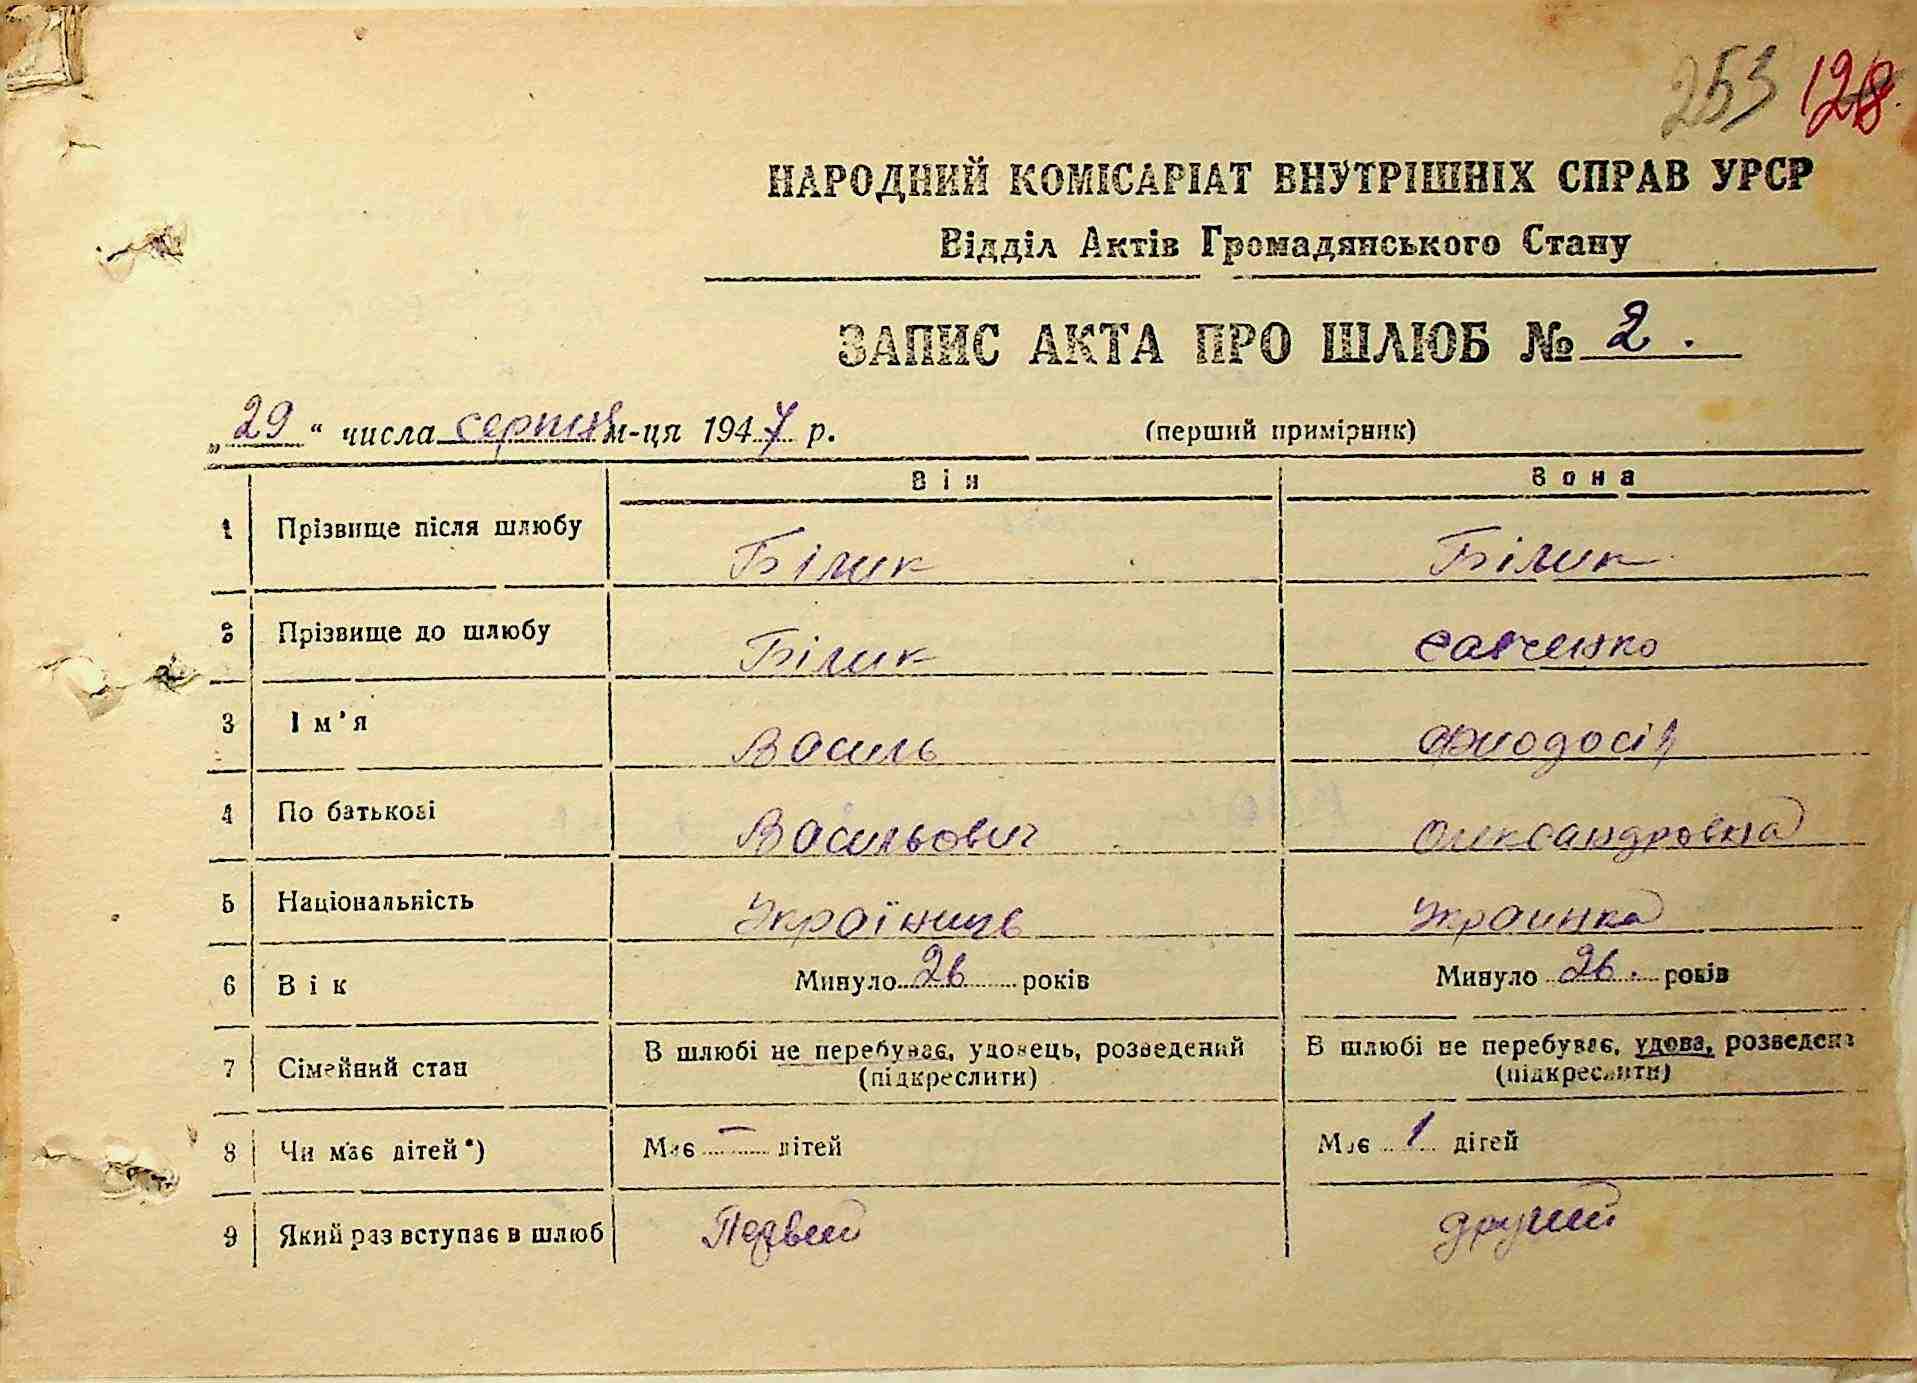 253 128
НАРОДНИЙ КОМІСАРІАТ ВНУТРІШНІХ СПРАВ УРСР
Відділ Актів Громадянського Стану
ЗАПИС АКТА ПРО ШЛЮБ № 2.
„29“ числа серпня м-ця 1947 р. (перший примірник)
Він Вона
1 Прізвище після шлюбу Білик Білик
2 Прізвище до шлюбу Білик Савченко
3 Ім'я Василь Фиодосія
4 По батькові Васильович Олександровна
5 Національність Українць Украинка
6 Вік Минуло 26 років Минуло 26. років
7 Сімейний стан В шлюбі не перебуває, удовець, розведений В шлюбі не перебуває, удова, розведена
(підкреслити) (підкреслити)
8 Чи має дітей*) Має – дітей Має 1 дітей
9 Який раз вступає в шлюб Первий другий